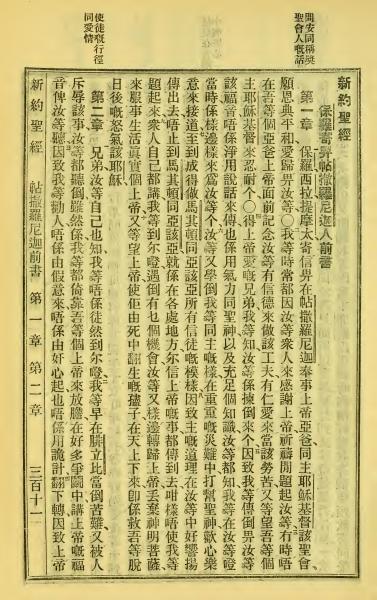 間安同稱奬
聖會人嘅話
使徒嘅行徑
同愛情
新約聖經
保羅寄畀帖撒羅尼迦人前書
第一章　保羅西拉提摩太寄信畀在帖撒羅尼迦奉事上帝亞爸同主耶穌基督該聖會
願恩典平和愛歸畀汝等〇我等時常都因汝等衆人來感謝上帝祈禱開題起汝等有時唔
在吾等個亞爸上帝面前記念汝等有信德來做該工夫有仁愛來當該勞苦又等望吾等個
主耶穌基督來忍耐个〇得上帝愛嘅兄弟我等知汝等係揀倒來个因致我等傳倒畀汝等
該福音唔係淨用說話來傳也係用氣力同聖神以及充足個知識汝等都知我等在汝等噔
當時係樣邊樣來爲汝等个汝等又學倒我等同主嘅樣在重重嘅災難中打幫聖神歡心樂
意來接道至到成得做馬其頓同亞該亞所有信徒嘅模樣因致主嘅道理在汝等中好響揚
傳出去唔止到馬其頓同亞該亞就係在各處地方尔信上帝嘅事都傳到去咁樣唔使我等
題起來衆人自己都講我等到尔噔遇倒有乜個機會汝等又樣邊轉歸上帝丟棄神明菩薩
來服事生活真實個上帝又等望上帝使佢由死中翻生嘅孻子在天上下來即係救吾等脫
日後嘅怒氣該耶穌
第二章　兄弟汝等自己也知我等唔係徒然到尔噔我等早在腓立比當倒苦難又被人
斥辱該事汝等都聽倒雖然係我等都倚靠吾等個上帝來放膽在好多爭鬬中講上帝嘅福
音俾汝等聽因致我等勸人唔係由假意來唔係由奸心起也唔係用詭計翻下轉因致上帝
新約聖經　帖撒羅尼迦前書　第一章　第二章　三百十一